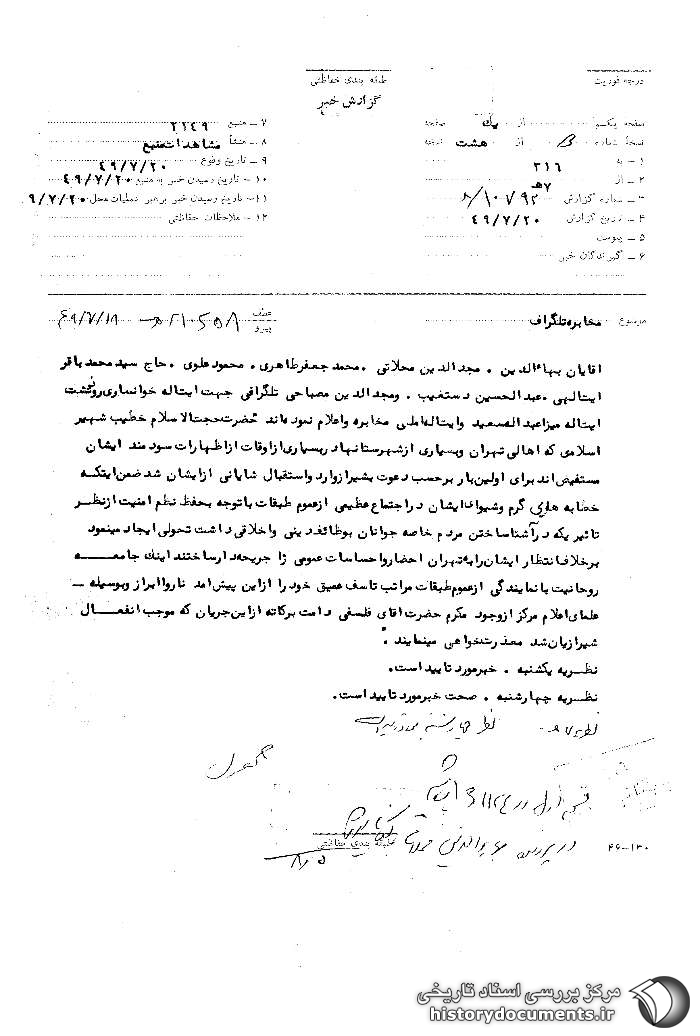 درجه فوریت
طبقه بندی حفاظتی
گزارش خبر
صفحه یکم از یک صفحه
نسخهٔ شماره از هشت نسخه
۱ – به ۳۱۶
۲ – از ۷ھ
۳ – شماره گزارش ۱۰۷۹۲/ھ
۴ – تاریخ گزارش ۴۹/۷/۲۰
۵ – پیوست
۶ – گیرندگان خبر
۷ – منبع ۲۱۴۹
۸ – منشأ مشاهدات منبع
۹ – تاریخ وقوع ۴۹/۷/۲۰
۱۰ – تاریخ رسیدن خبر به منبع ۴۹/۷/۲۰
۱۱ – تاریخ رسیدن خبر برهبر عملیات محل ۹/۷/۲۰
۱۲ – ملاحظات حفاظتی
موضوع مخابره تلگراف
عطف
پیرو ۲۱۰۵۰۸ – ۴۹/۷/۱۹
اقایان بهاءالدین . مجدالدین محلاتی . محمد جعفرطاهری . محمود علوی . حاج سید محمد باقر
ایتالهی . عبدالحسین دستغیب . ومجدالدین مصباحی تلگرافی جهت ایتاله خوانساری رونوشت
ایتاله میرزاعبدالهسعید وایتاله املی مخابره واعلام نموده اند حضرت حجت الاسلام خطیب شهیر
اسلامی که اهالی تهران وبسیاری ازشهرستانها دربسیاری ازاوقات ازاظهارات سودمند ایشان
مستفیض اند برای اولین بار برحسب دعوت بشیراز وارد واستقبال شایانی ازایشان شد ضمن اینکه
خطابه های گرم وشیوای ایشان دراجتماع عظیمی ازعموم طبقات با توجه بحفظ نظم امنیت ازنظر
تاثیر یکه درآشنا ساختن مردم خاصه جوانان بوظائف دینی واخلاقی داشت تحولی ایجاد مینمود
برخلاف انتظار ایشان رابه تهران احضار واحساسات عمومی را جریحه دار ساختند اینك جامعه
روحانیت با نمایندگی ازعموم طبقات مراتب تاسف عمیق خود را ازاین پیش امد ناروا ابراز وبوسیله –
علمای اعلام مرکز ازوجود مکرم حضرت اقای فلسفی دامت برکاته ازاین جریان که موجب انفعال
شیرازیان شد معذرت خواهی مینمایند .
نظریه یکشنبه . خبر مورد تایید است.
نظریه چهارشنبه . صحت خبر مورد تایید است.
نظریه ۷ھ – نظر چهارشنبه مورد تایید است
طبقه بندی حفاظتی
۲۶–۱۳۰
مرکز بررسی اسناد تاریخی
historydocuments.ir